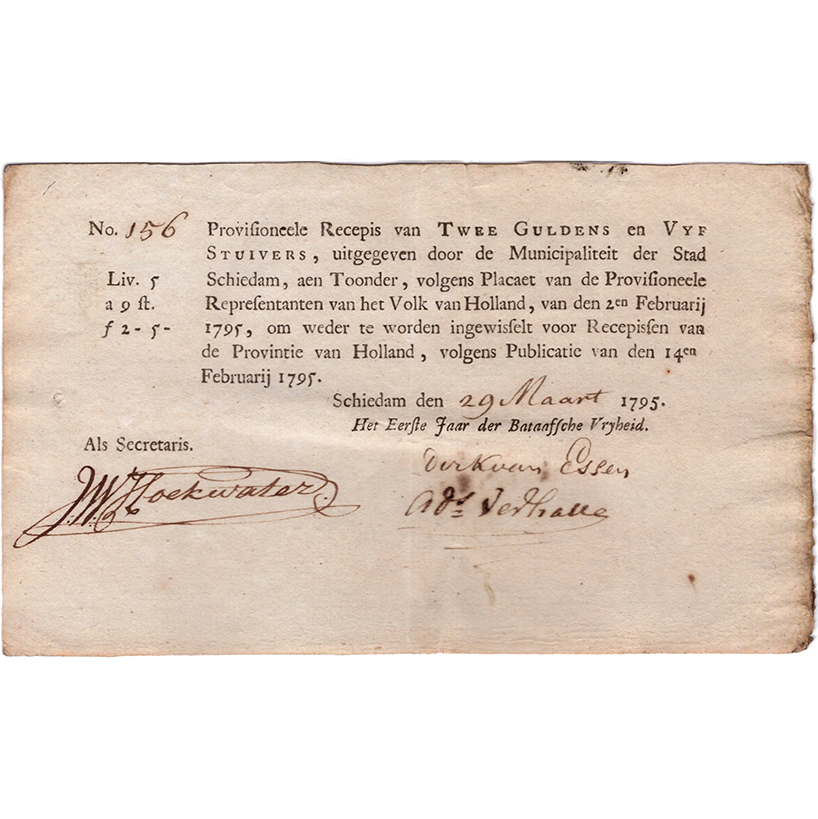 No. 156 Provisioneele Recepis van TWEE GULDENS en VYF
STUIVERS, uitgegeven door de Municipaliteit der Stad
Liv. 5 Schiedam, aen Toonder, volgens Placaet van de Provisioneele
a 9 st. Representanten van het Volk van Holland, van den 2en Februarij
f 2-5- 1795, om weder te worden ingewisselt voor Recepissen van
de Provintie van Holland, volgens Publicatie van den 14en
Februarij 1795.
Schiedam den 29 Maart 1795.
Het Eerste Jaar der Bataafsche Vryheid.
Als Secretaris.
Dirk van Essen
J.W. Hoekwater
Ads